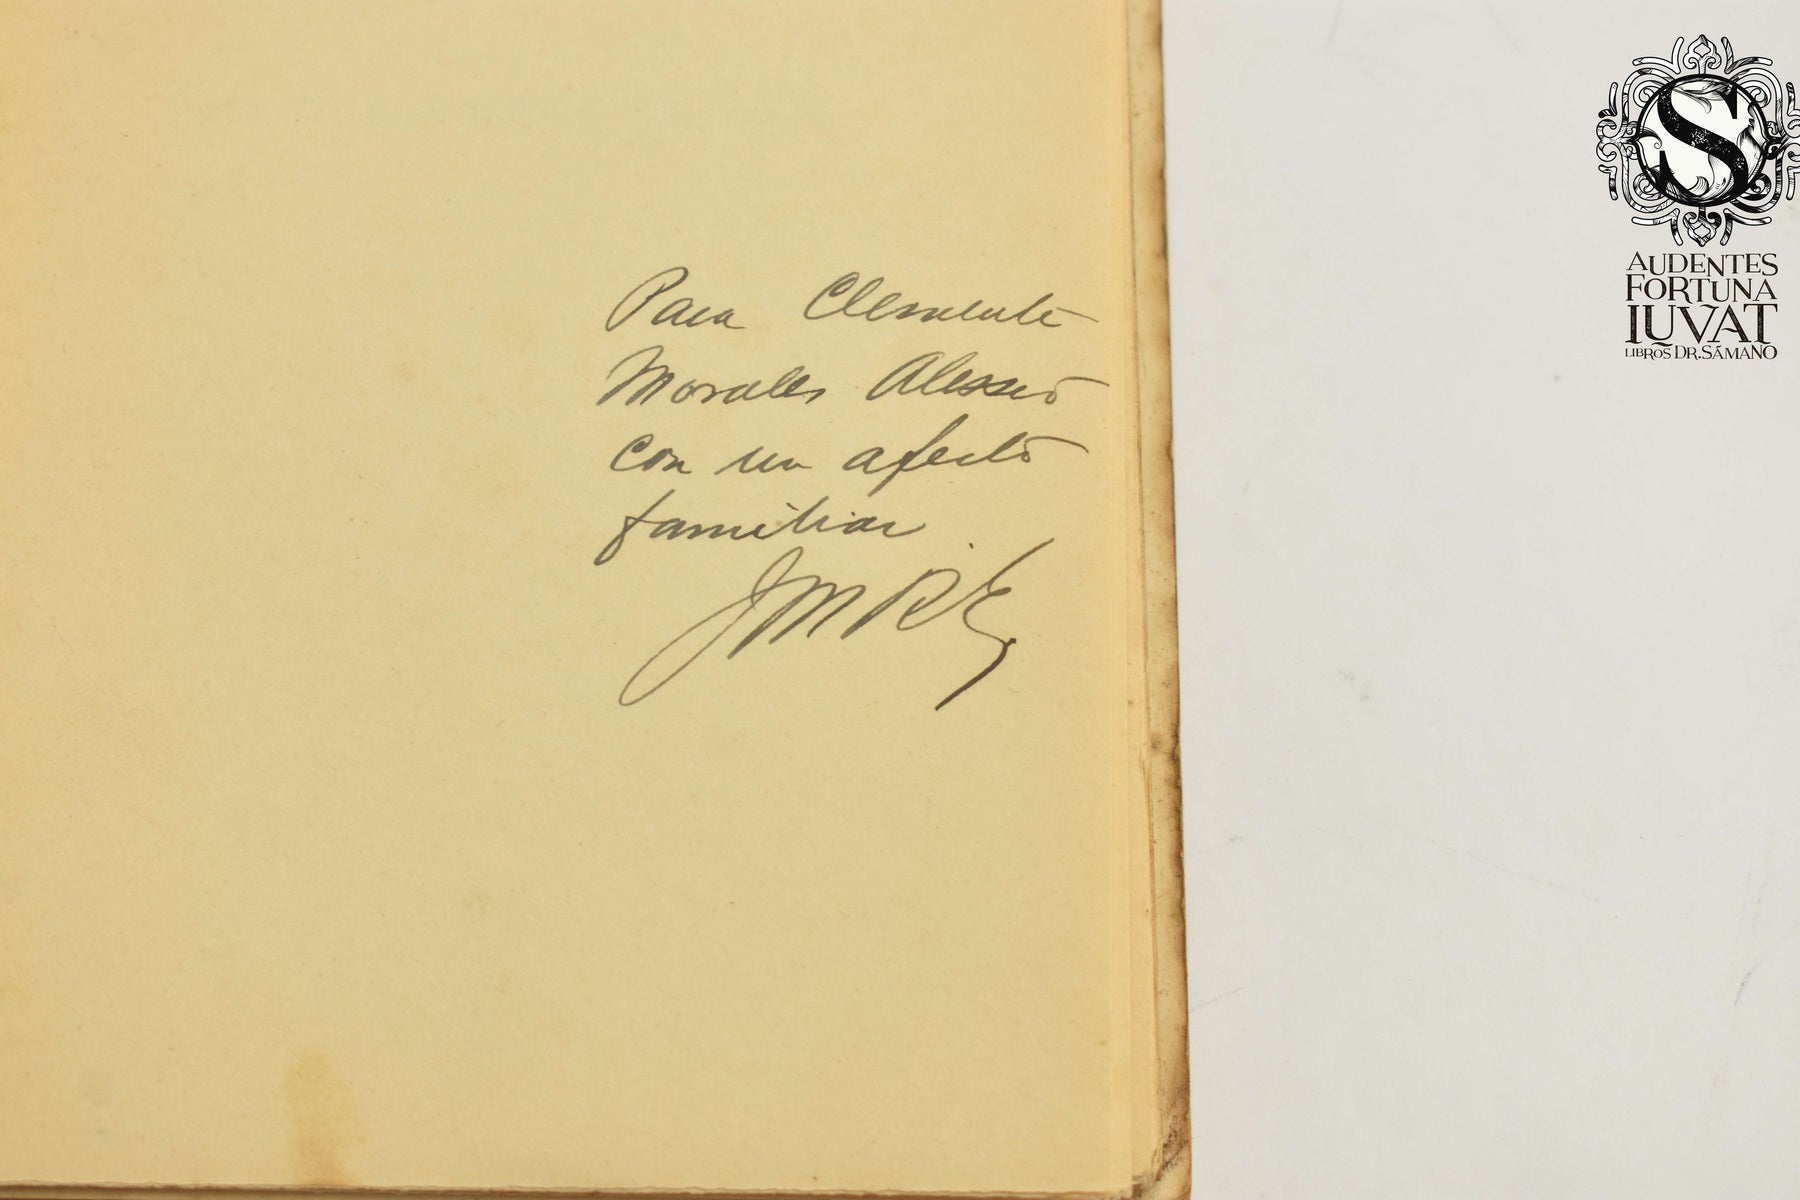 Para Clemente
Morales Alessio
con un afecto
familiar
JMR
S
AUDENTES
FORTUNA
IUVAT
LIBROS DR. SÁMANO